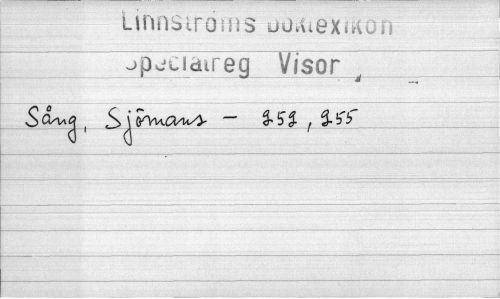 Linnströms Boklexikon
Specialreg Visor
Sång, Sjömans - 252, 255